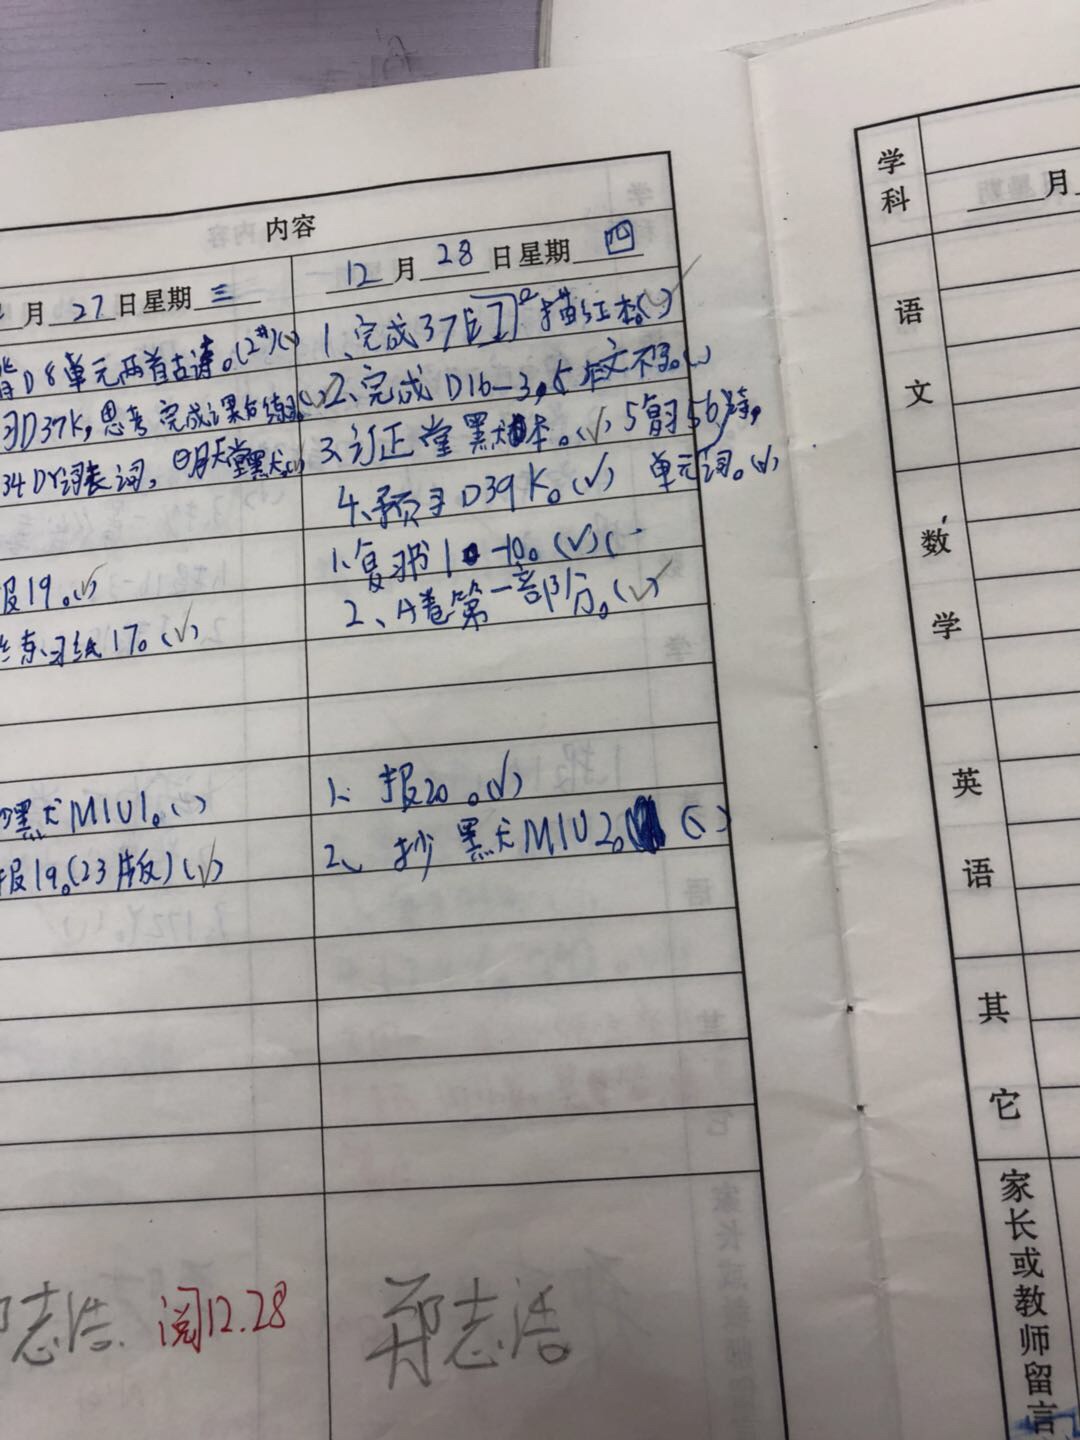 内容
月27日星期三
12月28日星期四
D8单元两首古诗。(2#)(√)
习D37K,思考完成课后练习。(√)
34DY词表词,明天堂黑犬。(√)
报19。(√)
练习纸17。(√)
黑犬M1U1。(√)
报19。(23版)(√)
1、完成37
描红本(√)
2、完成D16-3,5
不写。(√)
3、订正堂黑犬本。(√)
5复习5、6
单元词。(√)
4、预习D39K。(√)
1、复习书1-10。(√)(
2、A卷第一部分。(√)
1、报20。(√)
2、抄黑犬M1U2。(√)
志浩
阅12.28
郑志浩
学科
月
语文
数学
英语
其它
家长或教师留言